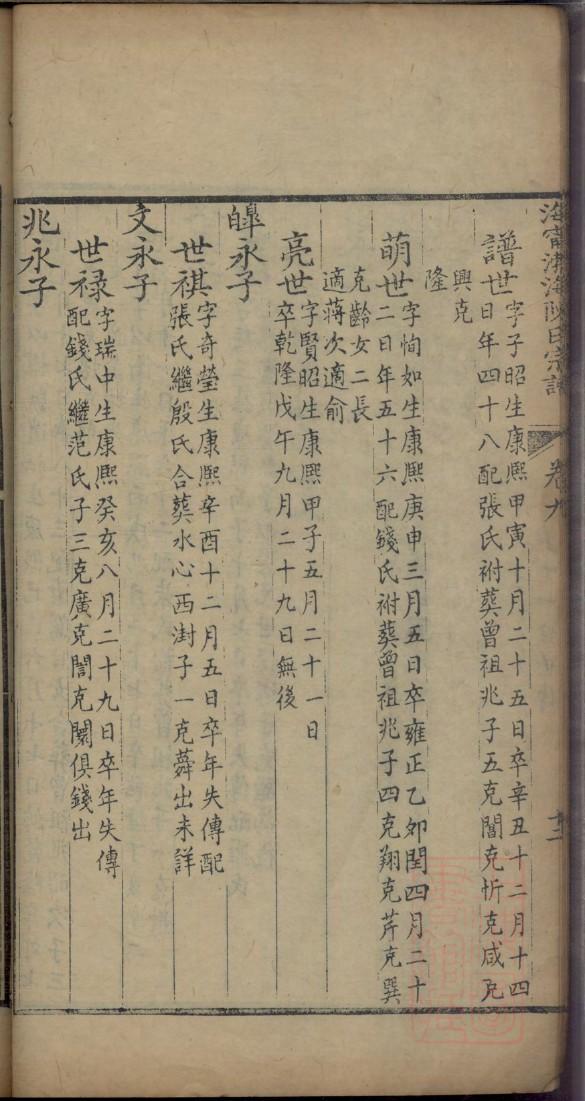 海甯渤海陳氏宗譜 卷九 十二
譜世
字子昭生康熙甲寅十月二十五日卒辛丑十二月十四
日年四十八配張氏祔葬曾祖兆子五克閶克忻克咸克
興克
隆
萌世
字恂如生康熙庚申三月五日卒雍正乙卯閏四月二十
二日年五十六配錢氏祔葬曾祖兆子四克翔克芹克巽
克齡女二長
適蔣次適俞
亮世
字賢昭生康熙甲子五月二十一日
卒乾隆戊午九月二十九日無後
皡永子
世祺
字奇瑩生康熙辛酉十二月五日卒年失傳配
張氏繼殷氏合葬水心西澍子一克蕣出未詳
文永子
世禄
字瑞中生康熙癸亥八月二十九日卒年失傳
配錢氏繼范氏子三克廣克誾克闋俱錢出
兆永子